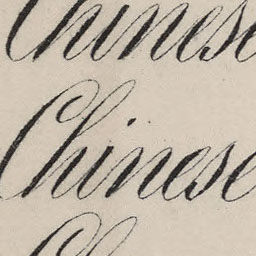 Chinese
Chinese
Ch